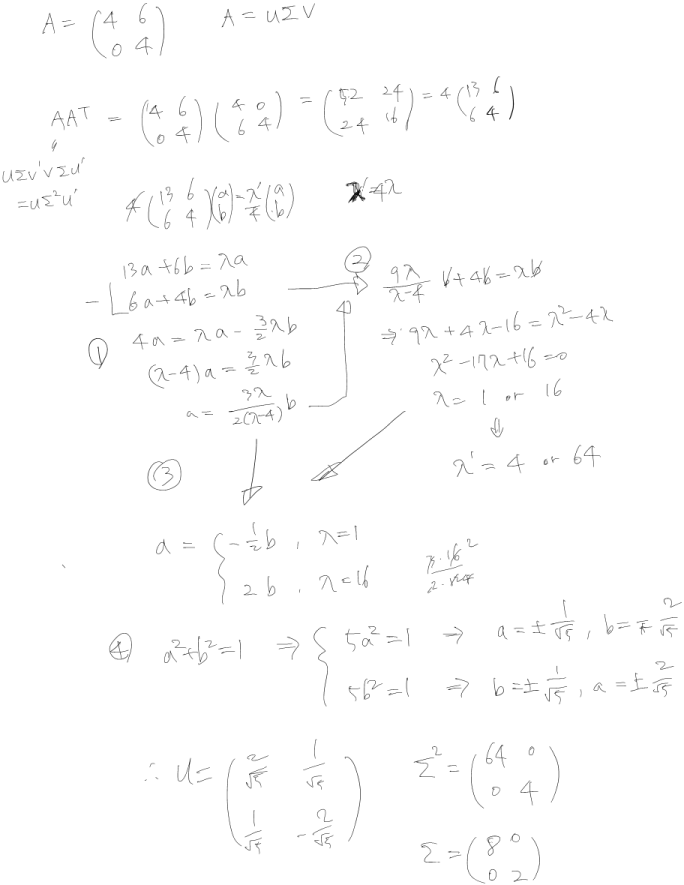 A = (4 6; 0 4)    A = UΣV
AAT = (4 6; 0 4)(4 0; 6 4) = (52 24; 24 16) = 4(13 6; 6 4)
UΣV'VΣU'
=UΣ²U'
4(13 6; 6 4)(a; b) = λ'/4 (a; b)    λ'=4λ
13a+6b=λa
- 6a+4b=λb
① 4a=λa-3/2λb
(λ-4)a=3/2λb
a=3λ/2(λ-4) b
② 9λ/λ-4 b+4b=λb
⇒ 9λ+4λ-16=λ²-4λ
λ²-17λ+16=0
λ=1 or 16
⇓
λ'=4 or 64
③
a = { -1/2b, λ=1
2b, λ=16
3·16²/2·124
④ a²+b²=1 ⇒ { 5a²=1 ⇒ a=±1/√5, b=∓2/√5
5b²=1 ⇒ b=±1/√5, a=±2/√5
∴ U= (2/√5 1/√5; 1/√5 -2/√5)    Σ²=(64 0; 0 4)
Σ=(8 0; 0 2)